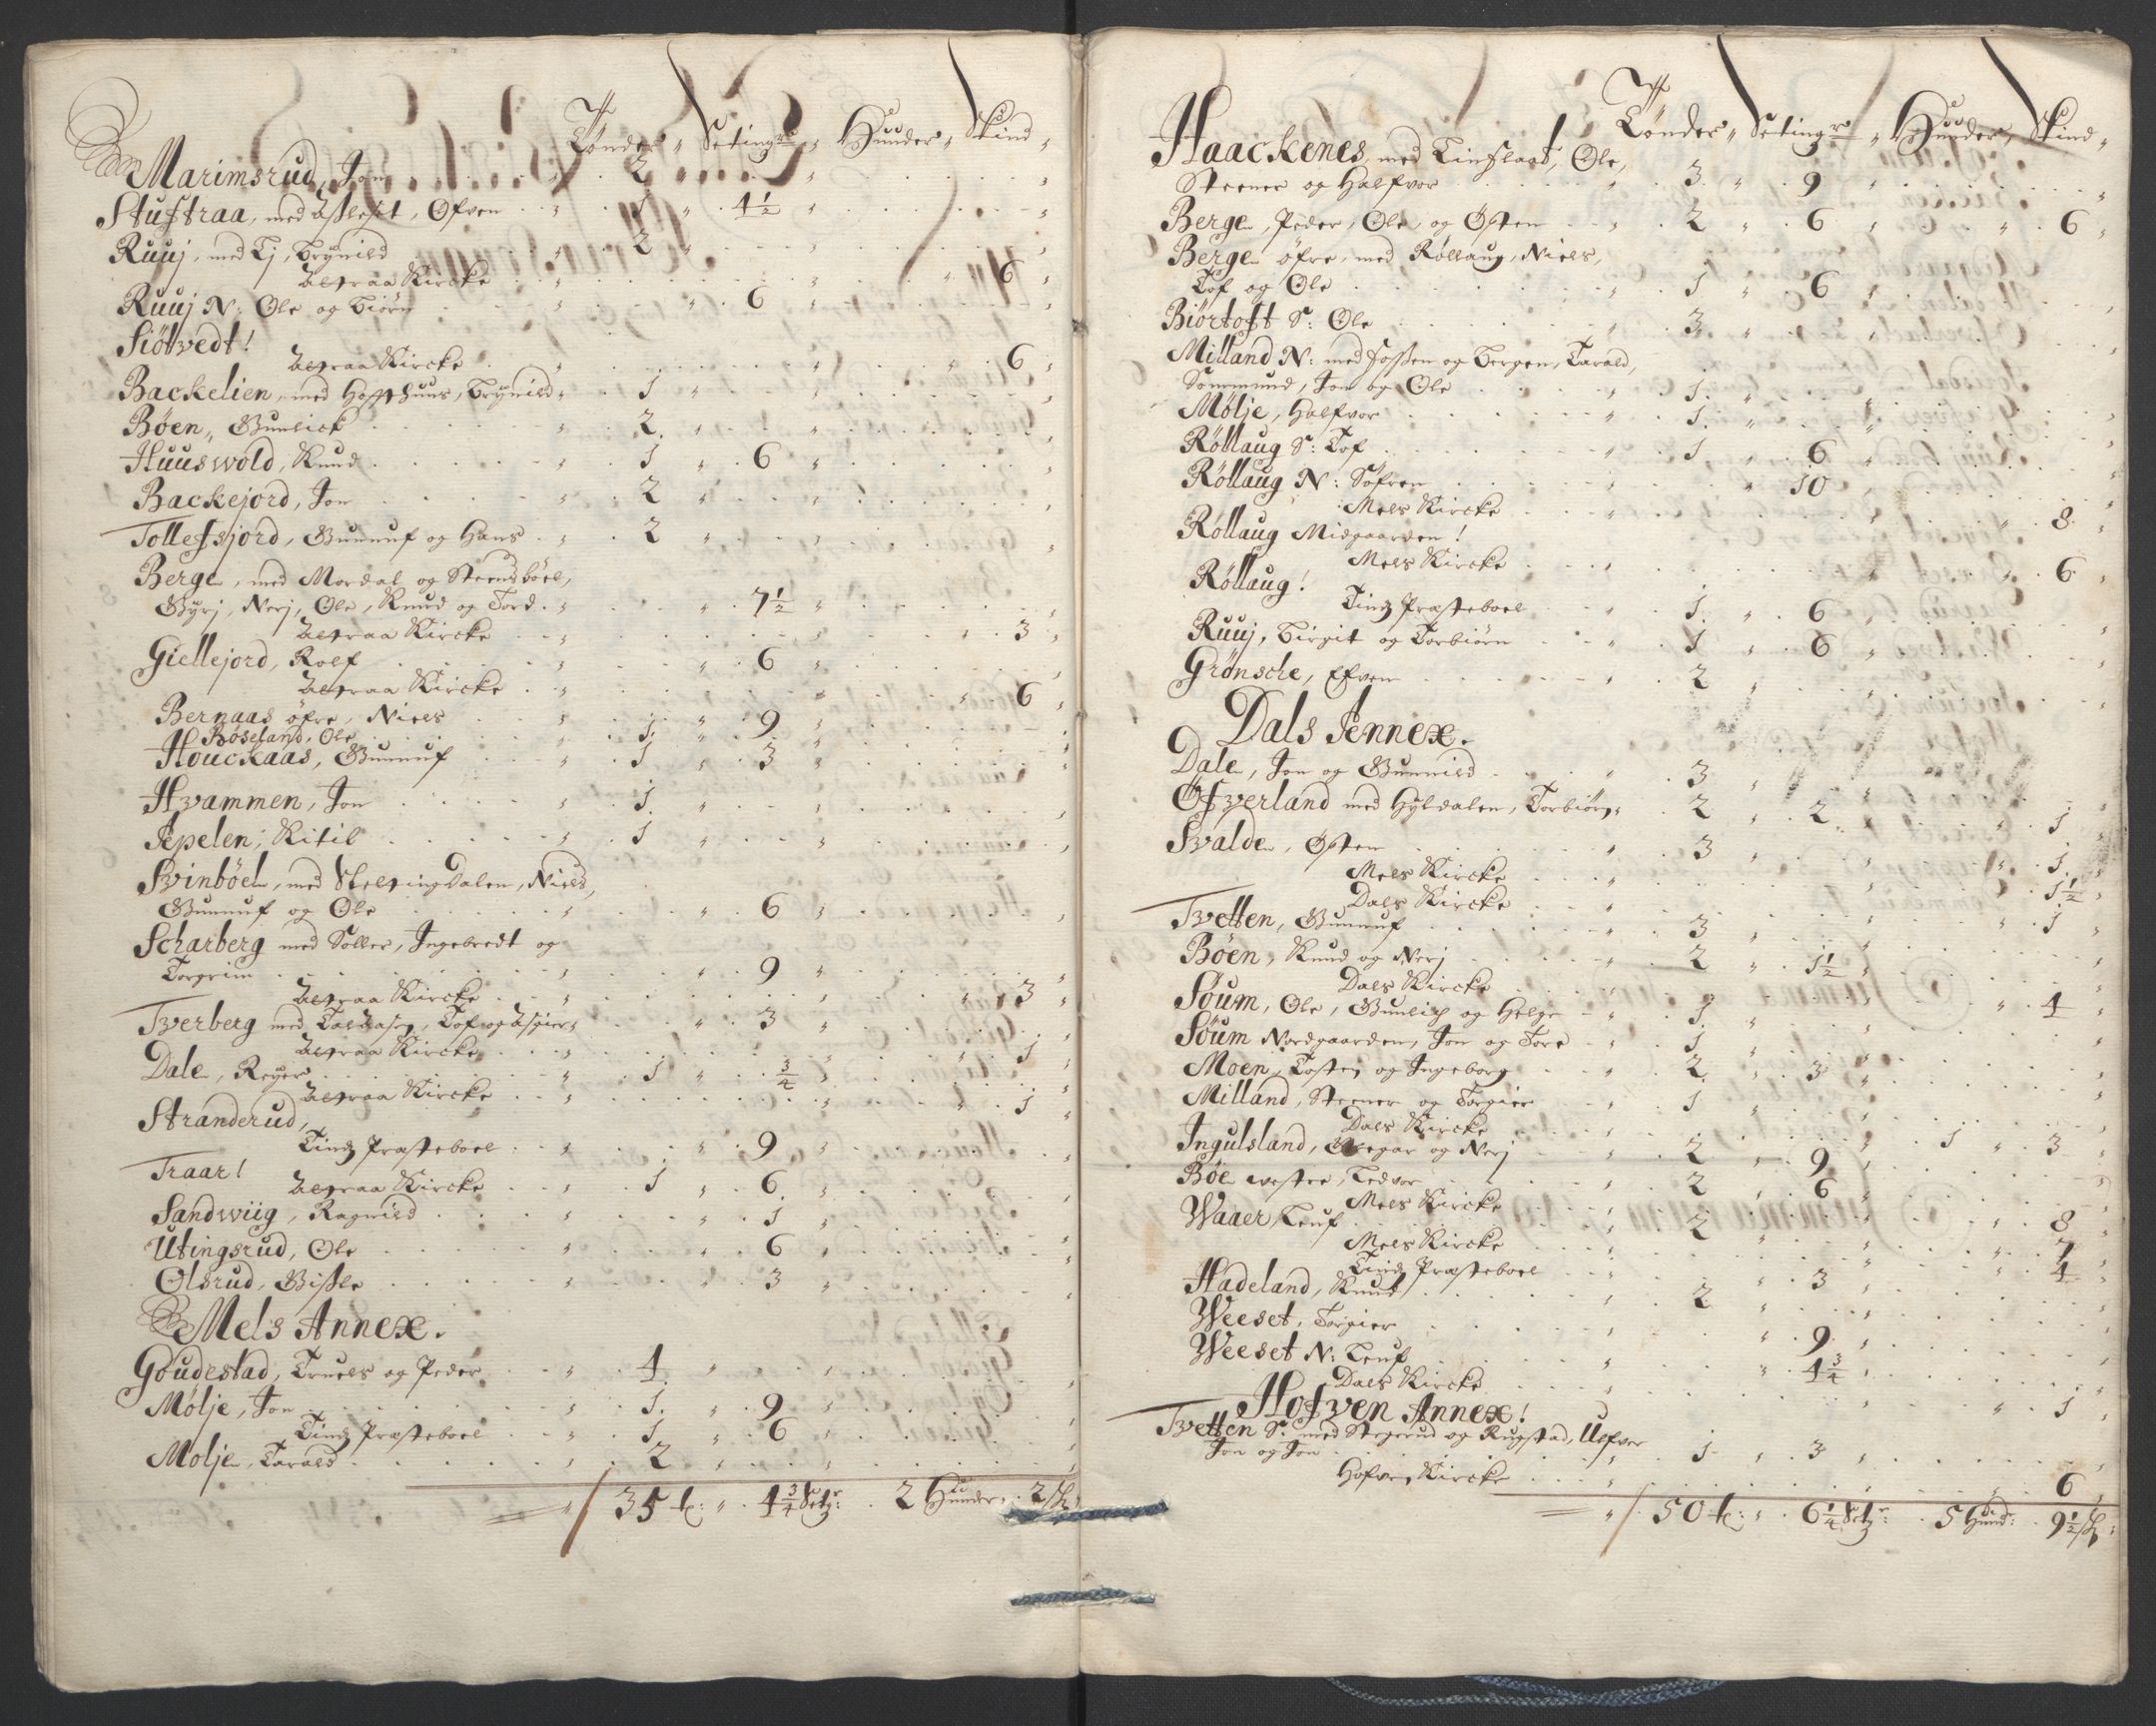 Tønder „ Setinger „ Huuder „ Skind „
Marimsrud, Jon . . . 2
Stustraa, med Asleset, Ofven . . 1 „ 4½
Ruuj, med Ej, Brynild . . 2
Atraa Kircke . . 6
Ruuj N: Ole og Biörn . . 6
Siötvedt!
Atraa Kircke . . 6
Backelien, med Hofshuus, Brynild . 1
Böen, Gunlick . . 2
Huuswold, Knud . . 1 „ 6
Backejord, Jon . . 2
Tollefsjord, Gunnuf og Hans . . 2
Berge, med Mordal og Steensböel,
Gyrj, Nerj, Ole, Knud og Tord . . 7½
Atraa Kircke . . 3
Giellejord, Rolf . . 6
Atraa Kircke . . 6
Bernaas öfre, Niels . . 1 „ 9
Böseland, Ole
Houckaas, Gunnuf . . 1 „ 3
Hvammen, Jon . . 1
Jepelen, Kitil . . 1
Svinböel, med Helgingdalen, Niels,
Gunnuf og Ole . . 6
Scharberg med Soller, Ingebredt og
Torgrim . . 9
Atraa Kircke . . 3
Tverberg med , Tof og Asgier . . 3
Atraa Kircke . . 1
Dale, Reyer . . 1 „ ¾
Atraa Kircke . . 1
Stranderud,
Tindz Præsteboel . . 9
Traar!
Atraa Kircke . . 1 „ 6
Sandwiig, Ragnild . . 1
Utingsrud, Ole . . 6
Olsrud, Gisle . . 3
Mels Annex.
Goudestad, Truels og Peder . . 4
Mølje, Jon . . 1 „ 9
Tindz Præsteboel . . 1 „ 6
Molje, Tarald . . 2
35 t: „ 4¾ Setg: . 2 Huuder . 2 sk:
Tønder „ Setinger „ Huuder, Skind „
Haackenes, med , Ole,
Steener og Halfvor . . 3 „ 9
Berge, Peder, Ole, og Østen . . 2 „ 6 „ 6
Berge öfre, med Röllaug, Niels,
Tof og Ole . . 1 „ 6
Biörtoft S: Ole . . 3
Milland N: med Fossen og Bergen, Tarald,
Sommund, Jon og Ole . . 1
Mølje, Halfvor . . 1
Röllaug S: Tof . . 1 „ 6
Röllaug N: Söfren . . 10
Mels Kircke . . 8
Röllaug Midgaarden!
Mels Kircke . . 6
Röllaug!
Tindz Præsteboel . . 1 „ 6
Ruuj, Birgit og Torbiörn . . 1 „ 6
Grönscle, Efven . . 2
Dals Annex.
Dale, Jon og Gunnild . . 3
Öfverland med Hyldalen, Torbiörn . 2 „ 2 „ 1
Svalde, Østen . . 3
Mels Kircke . . 1
Dals Kircke . . 1½
Tvetten, Gunnuf . . 3 „ 1
Böen, Knud og Nerj . . 2 „ 1½
Dals Kircke . . 4
Söum, Ole, Gunlich og Helge . . 1
Söum Nordgaarden, Jon og Tore . . 1
Moen, Tosten og Ingeborg . . 2 „ 3
Milland, Steener og Torgier . . 1
Dals Kircke . . 1 „ 3
Ingulsland, Gregar og Nerj . . 2 „ 9
Böe westre, Tedvor . . 2 „ 6
Mels Kircke . . 8
Waaer, Leuf . . 2
Mels Kircke . . 7
Tindz Præsteboel . . 3 „ 4
Hadeland, Knud . . 2
Weeset, Torgier . . 9
Weeset N: Leuf . . 4¾
Dals Kircke . . 1
Hofven Annex!
Tvetten S. med Stegerud og Rugstad, Ulfver
Jon og Jon . . 1 „ 3
Hofven Kircke . . 6
50 t: „ 6¼ Setg: . 5 Huud: . 9½ sk: